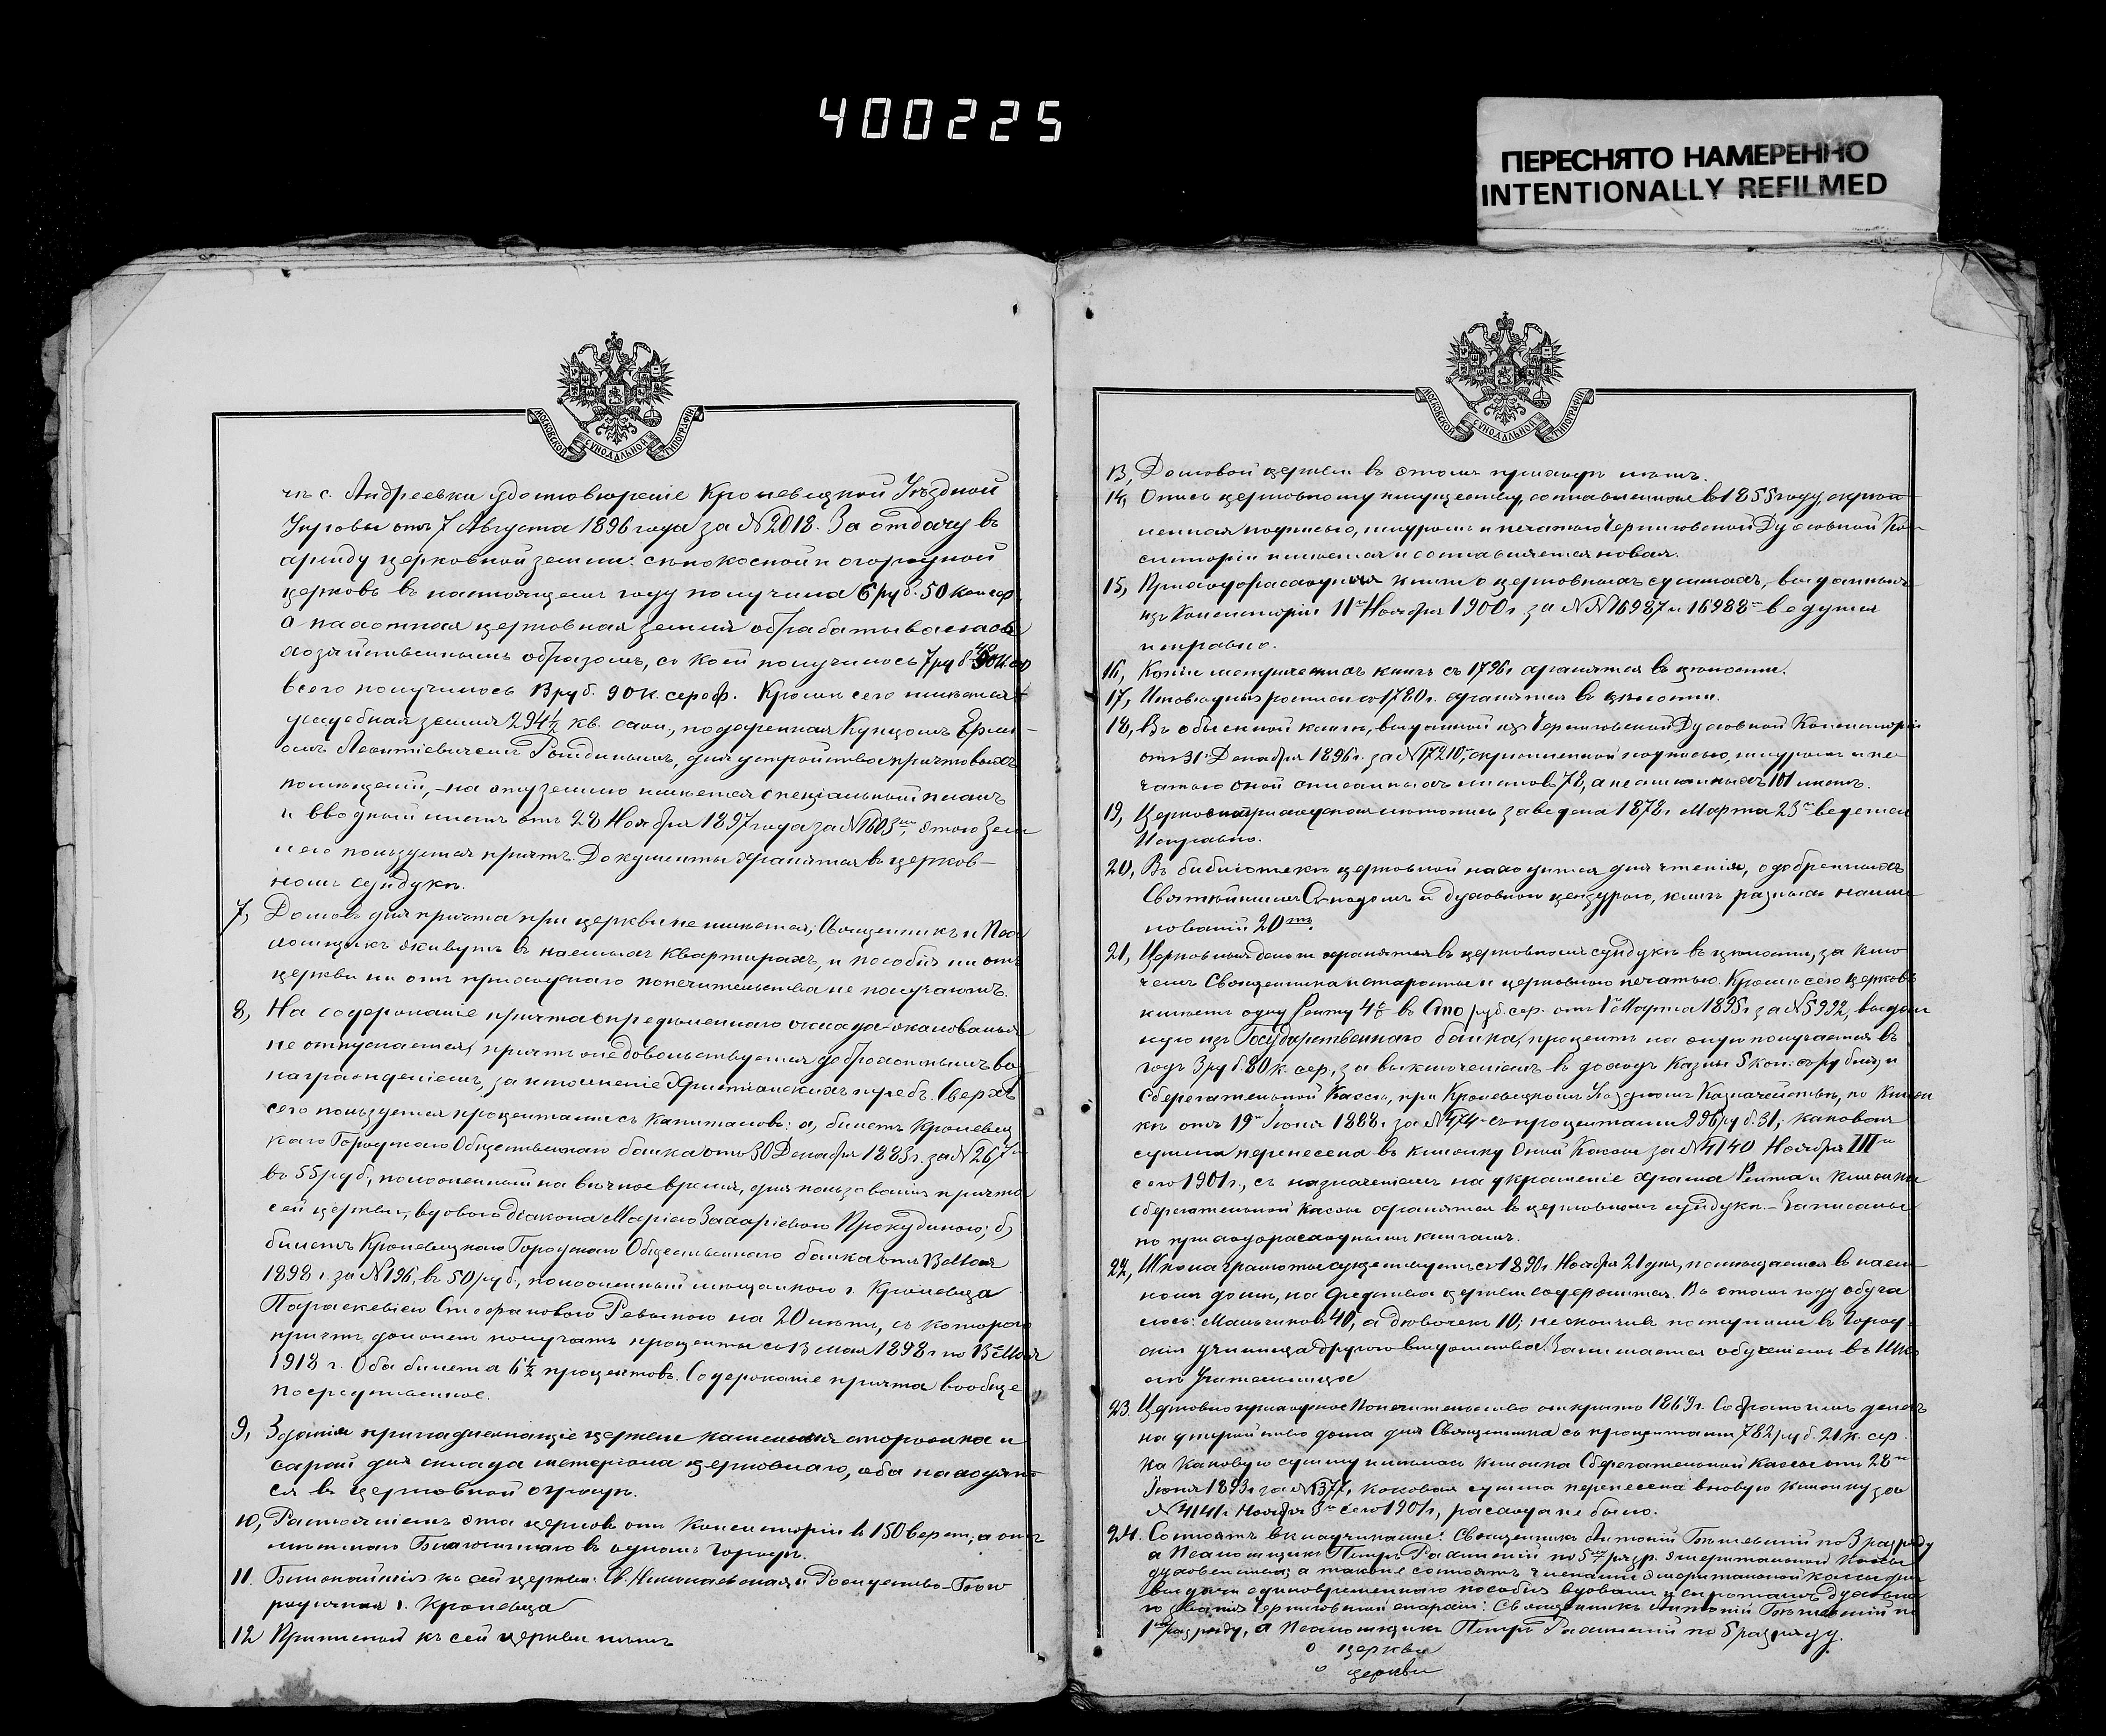 400225
ПЕРЕСНЯТО НАМЕРЕННО
INTENTIONALLY REFILMED
МОСКОВСКОЙ СУНОДАЛЬНОЙ ТИПОГРАФІИ
чѣ с. Андреевки удостовѣреніе Кролевецкой Уѣздной
Управы отъ 7 Августа 1896 года за №2018. За отдачу въ
аренду церковной земли: сѣнокосной и огородной
церковь въ настоящемъ году получила 6 руб. 50 коп. сер.
а пахотная церковная земля обрабатывалась
хозяйственнымъ образомъ, съ коей получилось 7 руб. 40 к. сер.
всего получилось 13 руб. 90 к. сереб. Кромѣ сего имѣется
усадебная земля 294½ кв. саж., подаренная Купцомъ
Леонтіевичемъ для устройства причтовыхъ
помѣщеній, – на эту землю имѣется спеціальный планъ
и вводный листъ отъ 28 Ноября 1897 года за №1603, этою зем
лею пользуется причтъ. Документы хранятся въ церков-
номъ сундукѣ.
7, Домовъ для причта при церкви не имѣется; Священникъ и Пса
ломщикъ живутъ въ наемныхъ квартирахъ, и пособія ни отъ
церкви ни отъ приходскаго попечительства не получаютъ.
8, На содержаніе причта опредѣленнаго оклада жалованья
не отпускается, причтъ довольствуется доброхотнымъ во
награжденіемъ, за исполненіе Христіанскихъ требъ. Сверхъ
сего пользуется процентами съ капиталовъ: а, билетъ Кролевец
каго Городскаго Общественнаго банка отъ 30 Декабря 1883 г. за №267
въ 55 руб., положенный на вѣчное время, для пользованія причта
сей церкви, вдовою Діакона Маріею Захаріевою Прокудиною; б)
билетъ Кролевецкаго Городскаго Общественнаго банка отъ 13 Мая
1898 г. за №196, въ 50 руб., положенный мѣщанкою г. Кролевца
Параскевіею Стефановою Ревькою на 20 лѣтъ, съ котораго
причтъ долженъ получать проценты съ 13 мая 1898 г. по 13 Мая
1918 г. Оба билета 6½ процентовъ. Содержаніе причта вообще
посредственное.
9, Зданія принадлежащіе церкви каменная сторожка и
сарай для склада матеріала церковнаго, оба находят-
ся въ церковной оградѣ.
10, Разстояніемъ эта церковь отъ Консисторіи въ 150 верст., а отъ
мѣстнаго Благочиннаго въ одномъ городѣ.
11. Ближайшія къ сей церкви: Св. Николаевская и Рождество-Бого
родичная г. Кролевца
12 Приписной къ сей церкви нѣтъ
МОСКОВСКОЙ СУНОДАЛЬНОЙ ТИПОГРАФІИ
13, Домовой церкви въ этомъ приходѣ нѣтъ.
14, Опись церковному имуществу, составленная въ 1855 году, скрѣп
ленная подписью, шнуромъ и печатью Черниговской Духовной Кон-
систоріи имѣется и составляется новая.
15, Приходорасходныя книги о церковныхъ суммахъ, выданныя
изъ Консисторіи 11 Ноября 1900 г. за №№16987 и 16988 ведутся
исправно.
16, Копіи метрическихъ книгъ съ 1796 г. хранятся въ цѣлости.
17, Исповѣдныя росписи съ 1780 г. хранятся въ цѣлости.
18, Въ обыскной книгѣ, выданной изъ Черниговской Духовной Консисторіи
отъ 31 Декабря 1896 г. за №17210, скрѣпленной подписью, шнуромъ и пе
чатью оной описанныхъ листовъ 78, а неписанныхъ 101 листъ.
19, Церковноприходская лѣтопись заведена 1878 г. Марта 23 ведется
Исправно.
20, Въ библіотекѣ церковной находится для чтенія, одобренныхъ
Святѣйшимъ Сѵнодомъ и духовною цензурою, книгъ разныхъ наиме
нованій 20
21, Церковныя деньги хранятся въ церковномъ сундукѣ въ цѣлости, за клю
чемъ Священника и старосты и церковною печатью. Кромѣ сего церковь
имѣетъ одну Ренту 4% въ Сто руб. сер. отъ 1 Марта 1895 г. за №5992, выдан
ную изъ Государственнаго банка, процентъ на оную получается въ
годъ 3 руб. 80 к. сер., за выключеніемъ въ доходъ Казны 5 коп. съ рубля; и
Сберегательной Кассы, при Кролевецкомъ Уѣздномъ Казначействѣ, по Книж
кѣ отъ 19 Іюня 1888 г. за №474 съ процентами 996 руб. 31, каковая
сумма перенесена въ книжку Оной Кассы за №4140 Ноября III
сего 1901 г., съ назначеніемъ на украшеніе храма Рента и книжка
сберегательной Кассы хранятся въ церковномъ сундукѣ. – Записаны
по приходорасходнымъ книгамъ.
22, Школа грамоты существуетъ съ 1890 г. Ноября 21 дня, помѣщается въ наем
номъ домѣ, на средства церкви содержится. Въ этомъ году обуча
лось: Мальчиковъ 40, а дѣвочекъ 10; не окончивъ поступили въ Город-
скія училища другого вѣдомства. Занимается обученіемъ въ Шко
лѣ Учительница
23. Церковно приходское Попечительство открыто 1869 г. Собрано имъ денегъ
на устройство дома для Священника съ процентами 782 руб. 21 к. сер.
на каковую сумму имѣлась книжка Сберегательной Кассы отъ 28
Іюня 1893 г. за №1377, каковая сумма перенесена въ новую книжку за
№4141 Ноября 3 сего 1901 г., расхода не было.
24. Состоятъ вкладчиками: Священникъ Антоній по 3 разряду
а Псаломщикъ Петръ по 5 разр. эмеритальной кассы
духовенства; а также состоятъ членами эмеритальной кассы для
выдачи единовременнаго пособія вдовамъ и сиротамъ Духовна
го званія Черниговской епархіи: Священникъ Антоній по
1 разряду, а Псаломщикъ Петръ по 5 разряду.
о церкви
о церкви